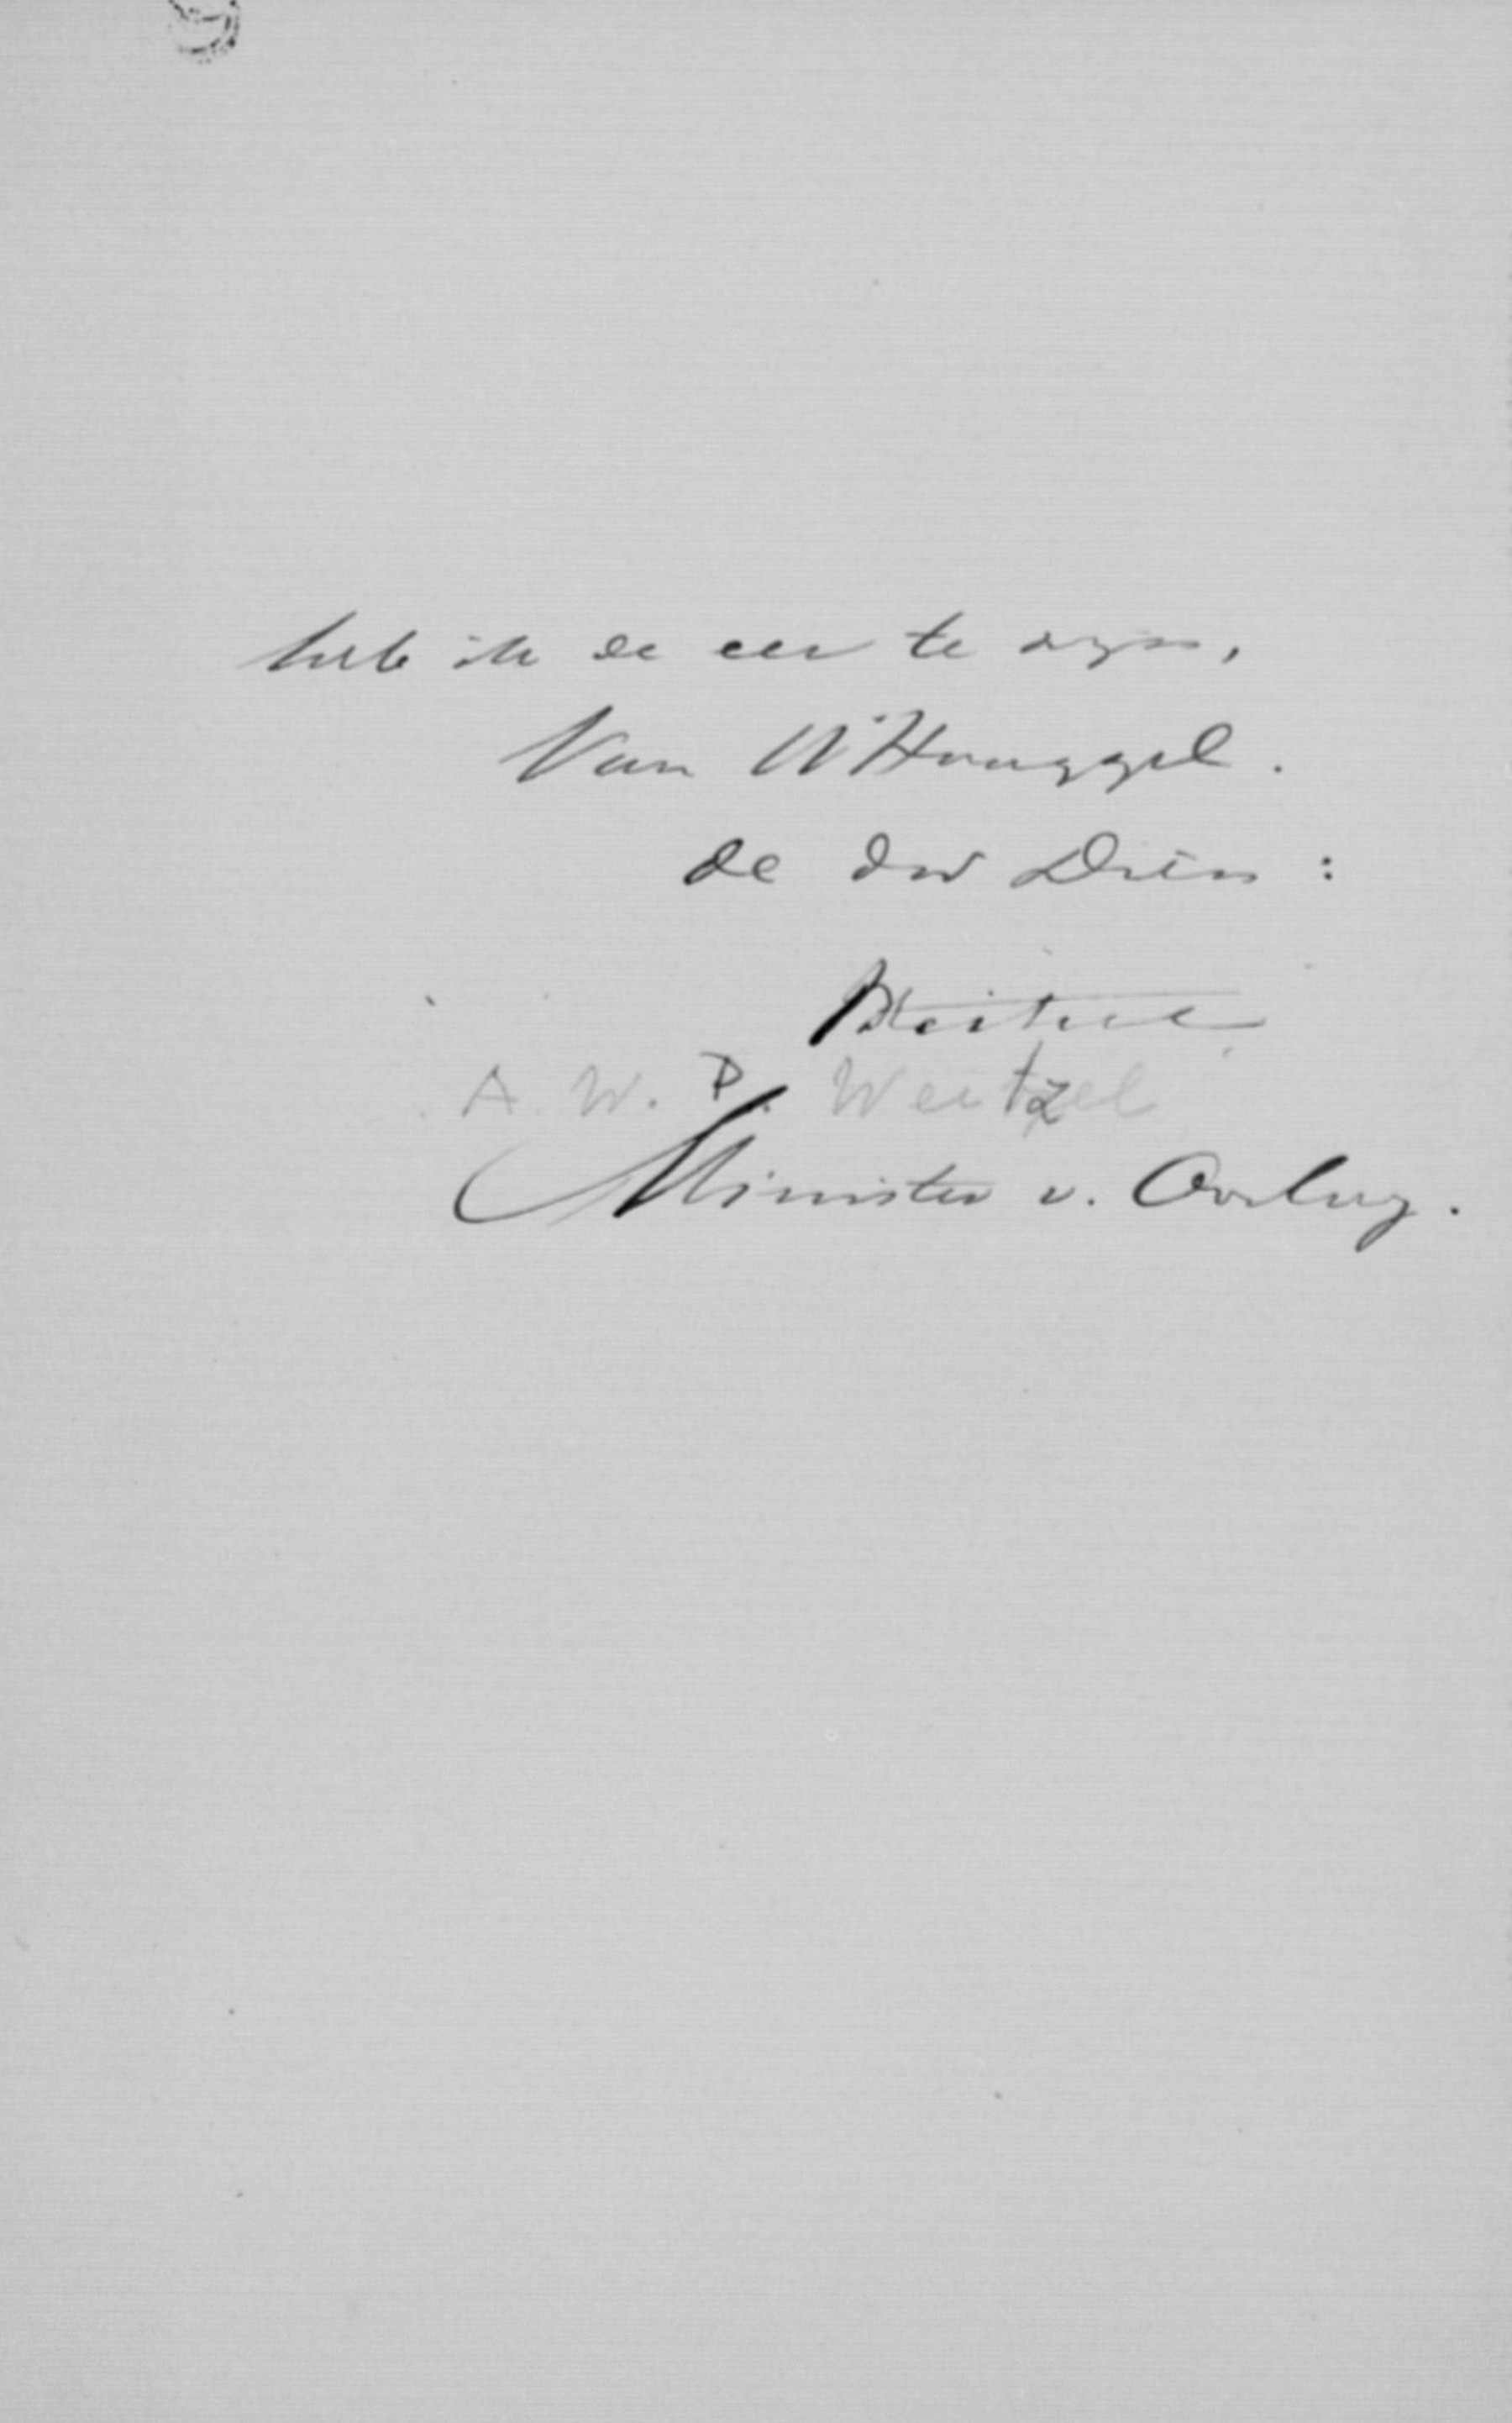 heb ik de eer te zijn,
Van UHoog
de dw Dien :
Weitzel
A. W. P. Weitzel
Minister v. Oorlog.